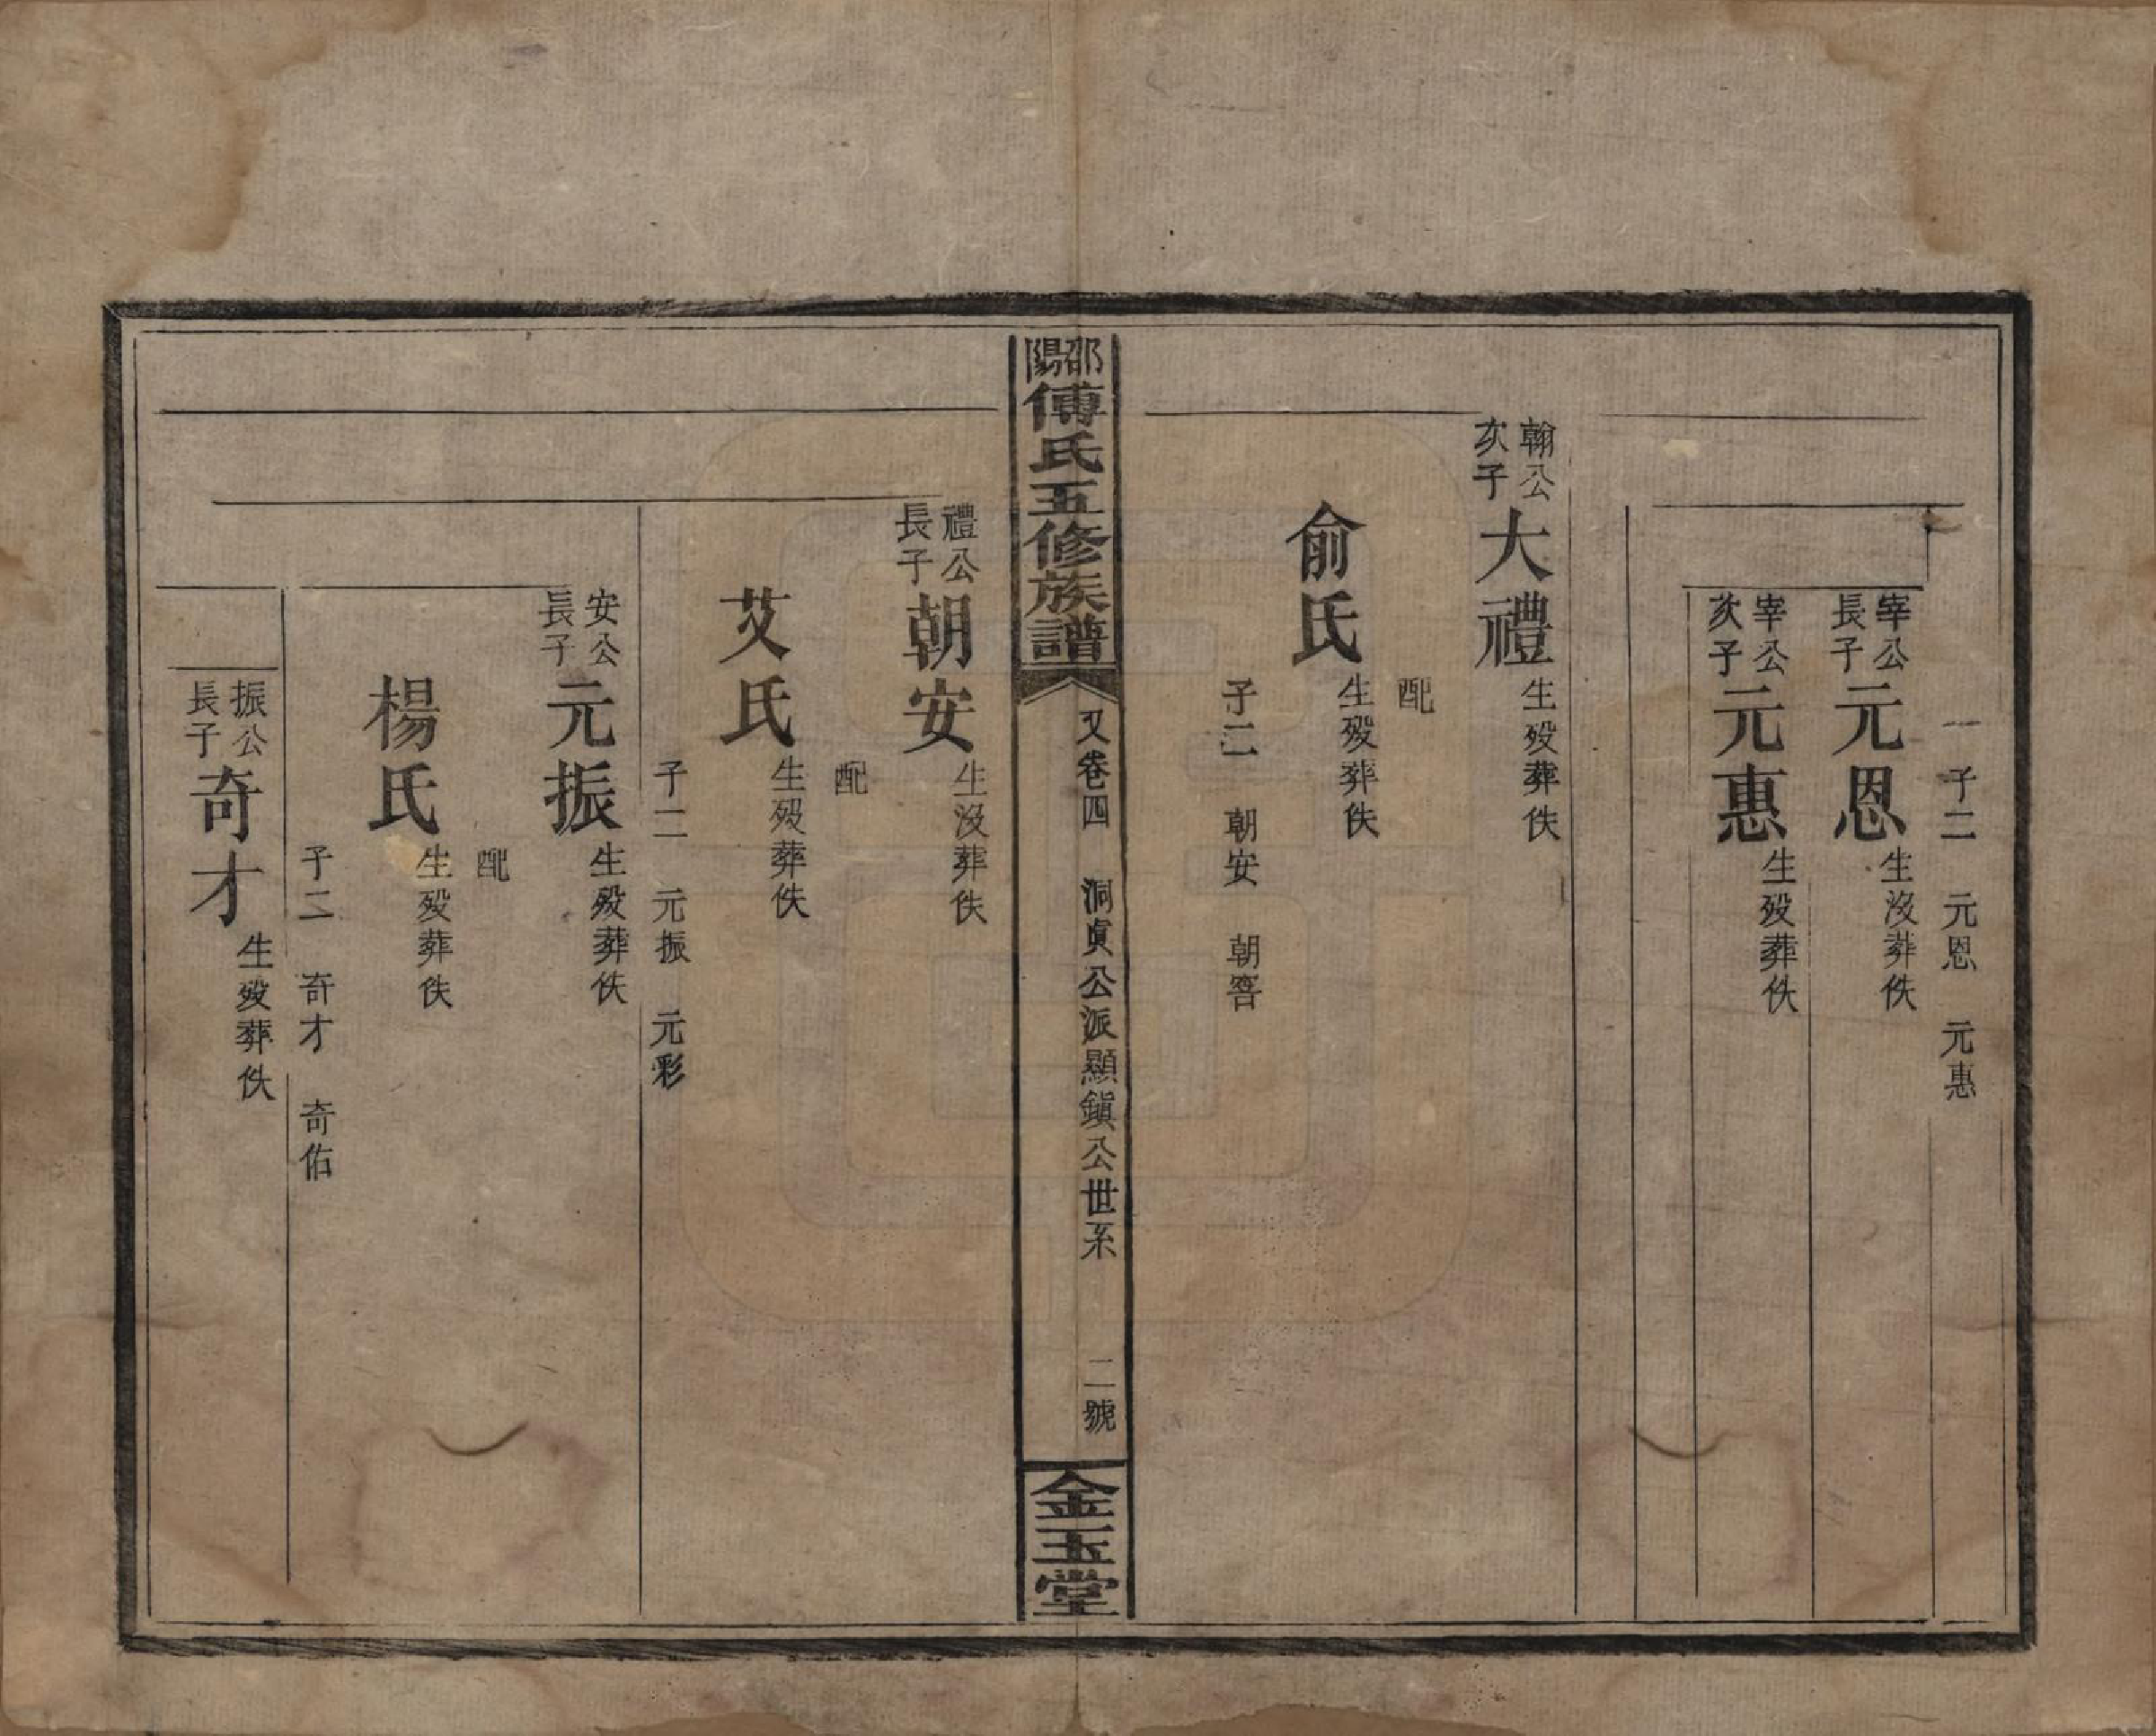 子二　元恩　元惠
宰公長子　元恩　生沒葬佚
宰公次子　元惠　生歿葬佚
翰公次子　大禮　生歿葬佚
配
俞氏　生歿葬佚
子二　朝安　朝
邵陽傅氏五修族譜　又卷四　洞真公派顯鎮公世系　二號　金玉堂
禮公長子　朝安　生沒葬佚
配
艾氏　生歿葬佚
子二　元振　元彩
安公長子　元振　生歿葬佚
配
楊氏　生歿葬佚
子二　奇才　奇佑
振公長子　奇才　生歿葬佚